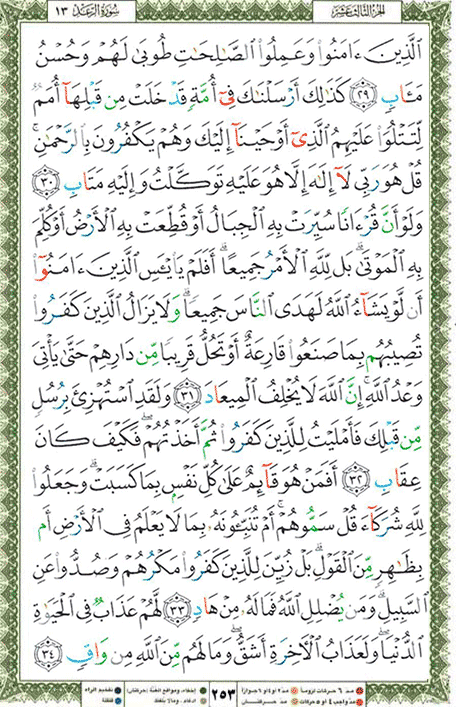 سُورَةُ الرَّعْدِ ١٣
الجزء الثالث عشر
ٱلَّذِينَ ءَامَنُوا۟ وَعَمِلُوا۟ ٱلصَّـٰلِحَـٰتِ طُوبَىٰ لَهُمْ وَحُسْنُ
مَـَٔابٍ ٢٩ كَذَٰلِكَ أَرْسَلْنَـٰكَ فِىٓ أُمَّةٍ قَدْ خَلَتْ مِن قَبْلِهَآ أُمَمٌ
لِّتَتْلُوَا۟ عَلَيْهِمُ ٱلَّذِىٓ أَوْحَيْنَآ إِلَيْكَ وَهُمْ يَكْفُرُونَ بِٱلرَّحْمَـٰنِ ۚ
قُلْ هُوَ رَبِّى لَآ إِلَـٰهَ إِلَّا هُوَ عَلَيْهِ تَوَكَّلْتُ وَإِلَيْهِ مَتَابِ ٣٠
وَلَوْ أَنَّ قُرْءَانًا سُيِّرَتْ بِهِ ٱلْجِبَالُ أَوْ قُطِّعَتْ بِهِ ٱلْأَرْضُ أَوْ كُلِّمَ
بِهِ ٱلْمَوْتَىٰ ۗ بَل لِّلَّهِ ٱلْأَمْرُ جَمِيعًا ۗ أَفَلَمْ يَا۟يْـَٔسِ ٱلَّذِينَ ءَامَنُوٓا۟
أَن لَّوْ يَشَآءُ ٱللَّهُ لَهَدَى ٱلنَّاسَ جَمِيعًا ۗ وَلَا يَزَالُ ٱلَّذِينَ كَفَرُوا۟
تُصِيبُهُم بِمَا صَنَعُوا۟ قَارِعَةٌ أَوْ تَحُلُّ قَرِيبًا مِّن دَارِهِمْ حَتَّىٰ يَأْتِىَ
وَعْدُ ٱللَّهِ ۚ إِنَّ ٱللَّهَ لَا يُخْلِفُ ٱلْمِيعَادَ ٣١ وَلَقَدِ ٱسْتُهْزِئَ بِرُسُلٍ
مِّن قَبْلِكَ فَأَمْلَيْتُ لِلَّذِينَ كَفَرُوا۟ ثُمَّ أَخَذْتُهُمْ ۖ فَكَيْفَ كَانَ
عِقَابِ ٣٢ أَفَمَنْ هُوَ قَآئِمٌ عَلَىٰ كُلِّ نَفْسٍۭ بِمَا كَسَبَتْ ۗ وَجَعَلُوا۟
لِلَّهِ شُرَكَآءَ قُلْ سَمُّوهُمْ ۚ أَمْ تُنَبِّـُٔونَهُۥ بِمَا لَا يَعْلَمُ فِى ٱلْأَرْضِ أَم
بِظَـٰهِرٍ مِّنَ ٱلْقَوْلِ ۗ بَلْ زُيِّنَ لِلَّذِينَ كَفَرُوا۟ مَكْرُهُمْ وَصُدُّوا۟ عَنِ
ٱلسَّبِيلِ ۗ وَمَن يُضْلِلِ ٱللَّهُ فَمَا لَهُۥ مِنْ هَادٍ ٣٣ لَّهُمْ عَذَابٌ فِى ٱلْحَيَوٰةِ
ٱلدُّنْيَا ۖ وَلَعَذَابُ ٱلْـَٔاخِرَةِ أَشَقُّ ۖ وَمَا لَهُم مِّنَ ٱللَّهِ مِن وَاقٍ ٣٤
٢٥٣